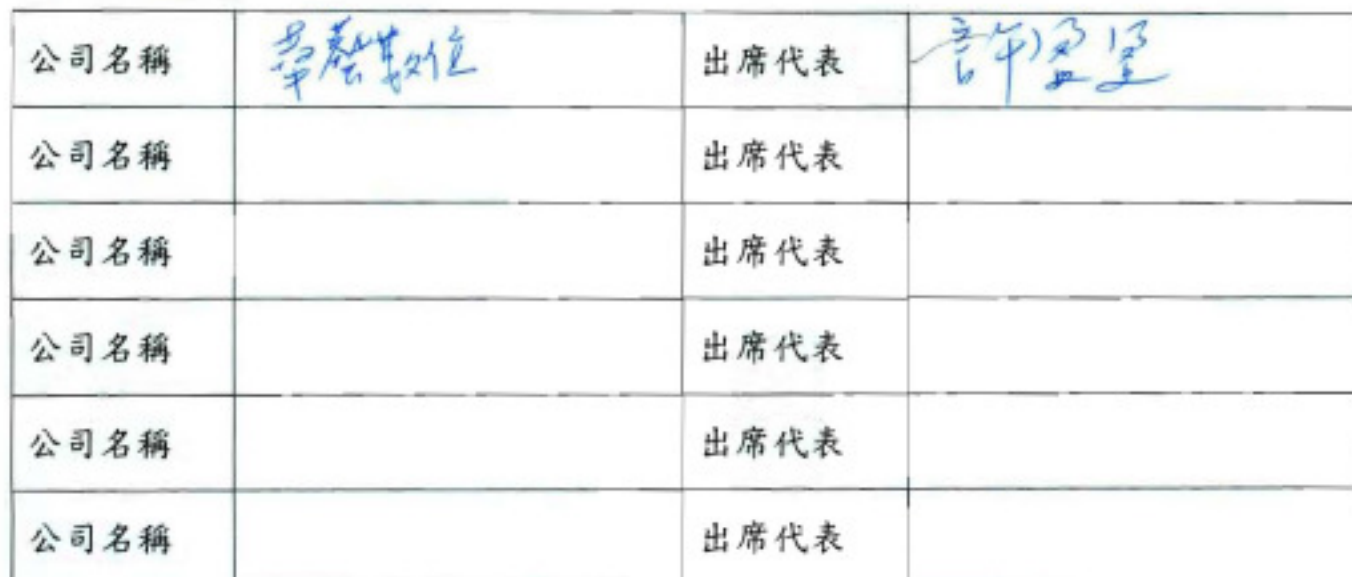 公司名稱 數位 出席代表 許盈
公司名稱 出席代表
公司名稱 出席代表
公司名稱 出席代表
公司名稱 出席代表
公司名稱 出席代表